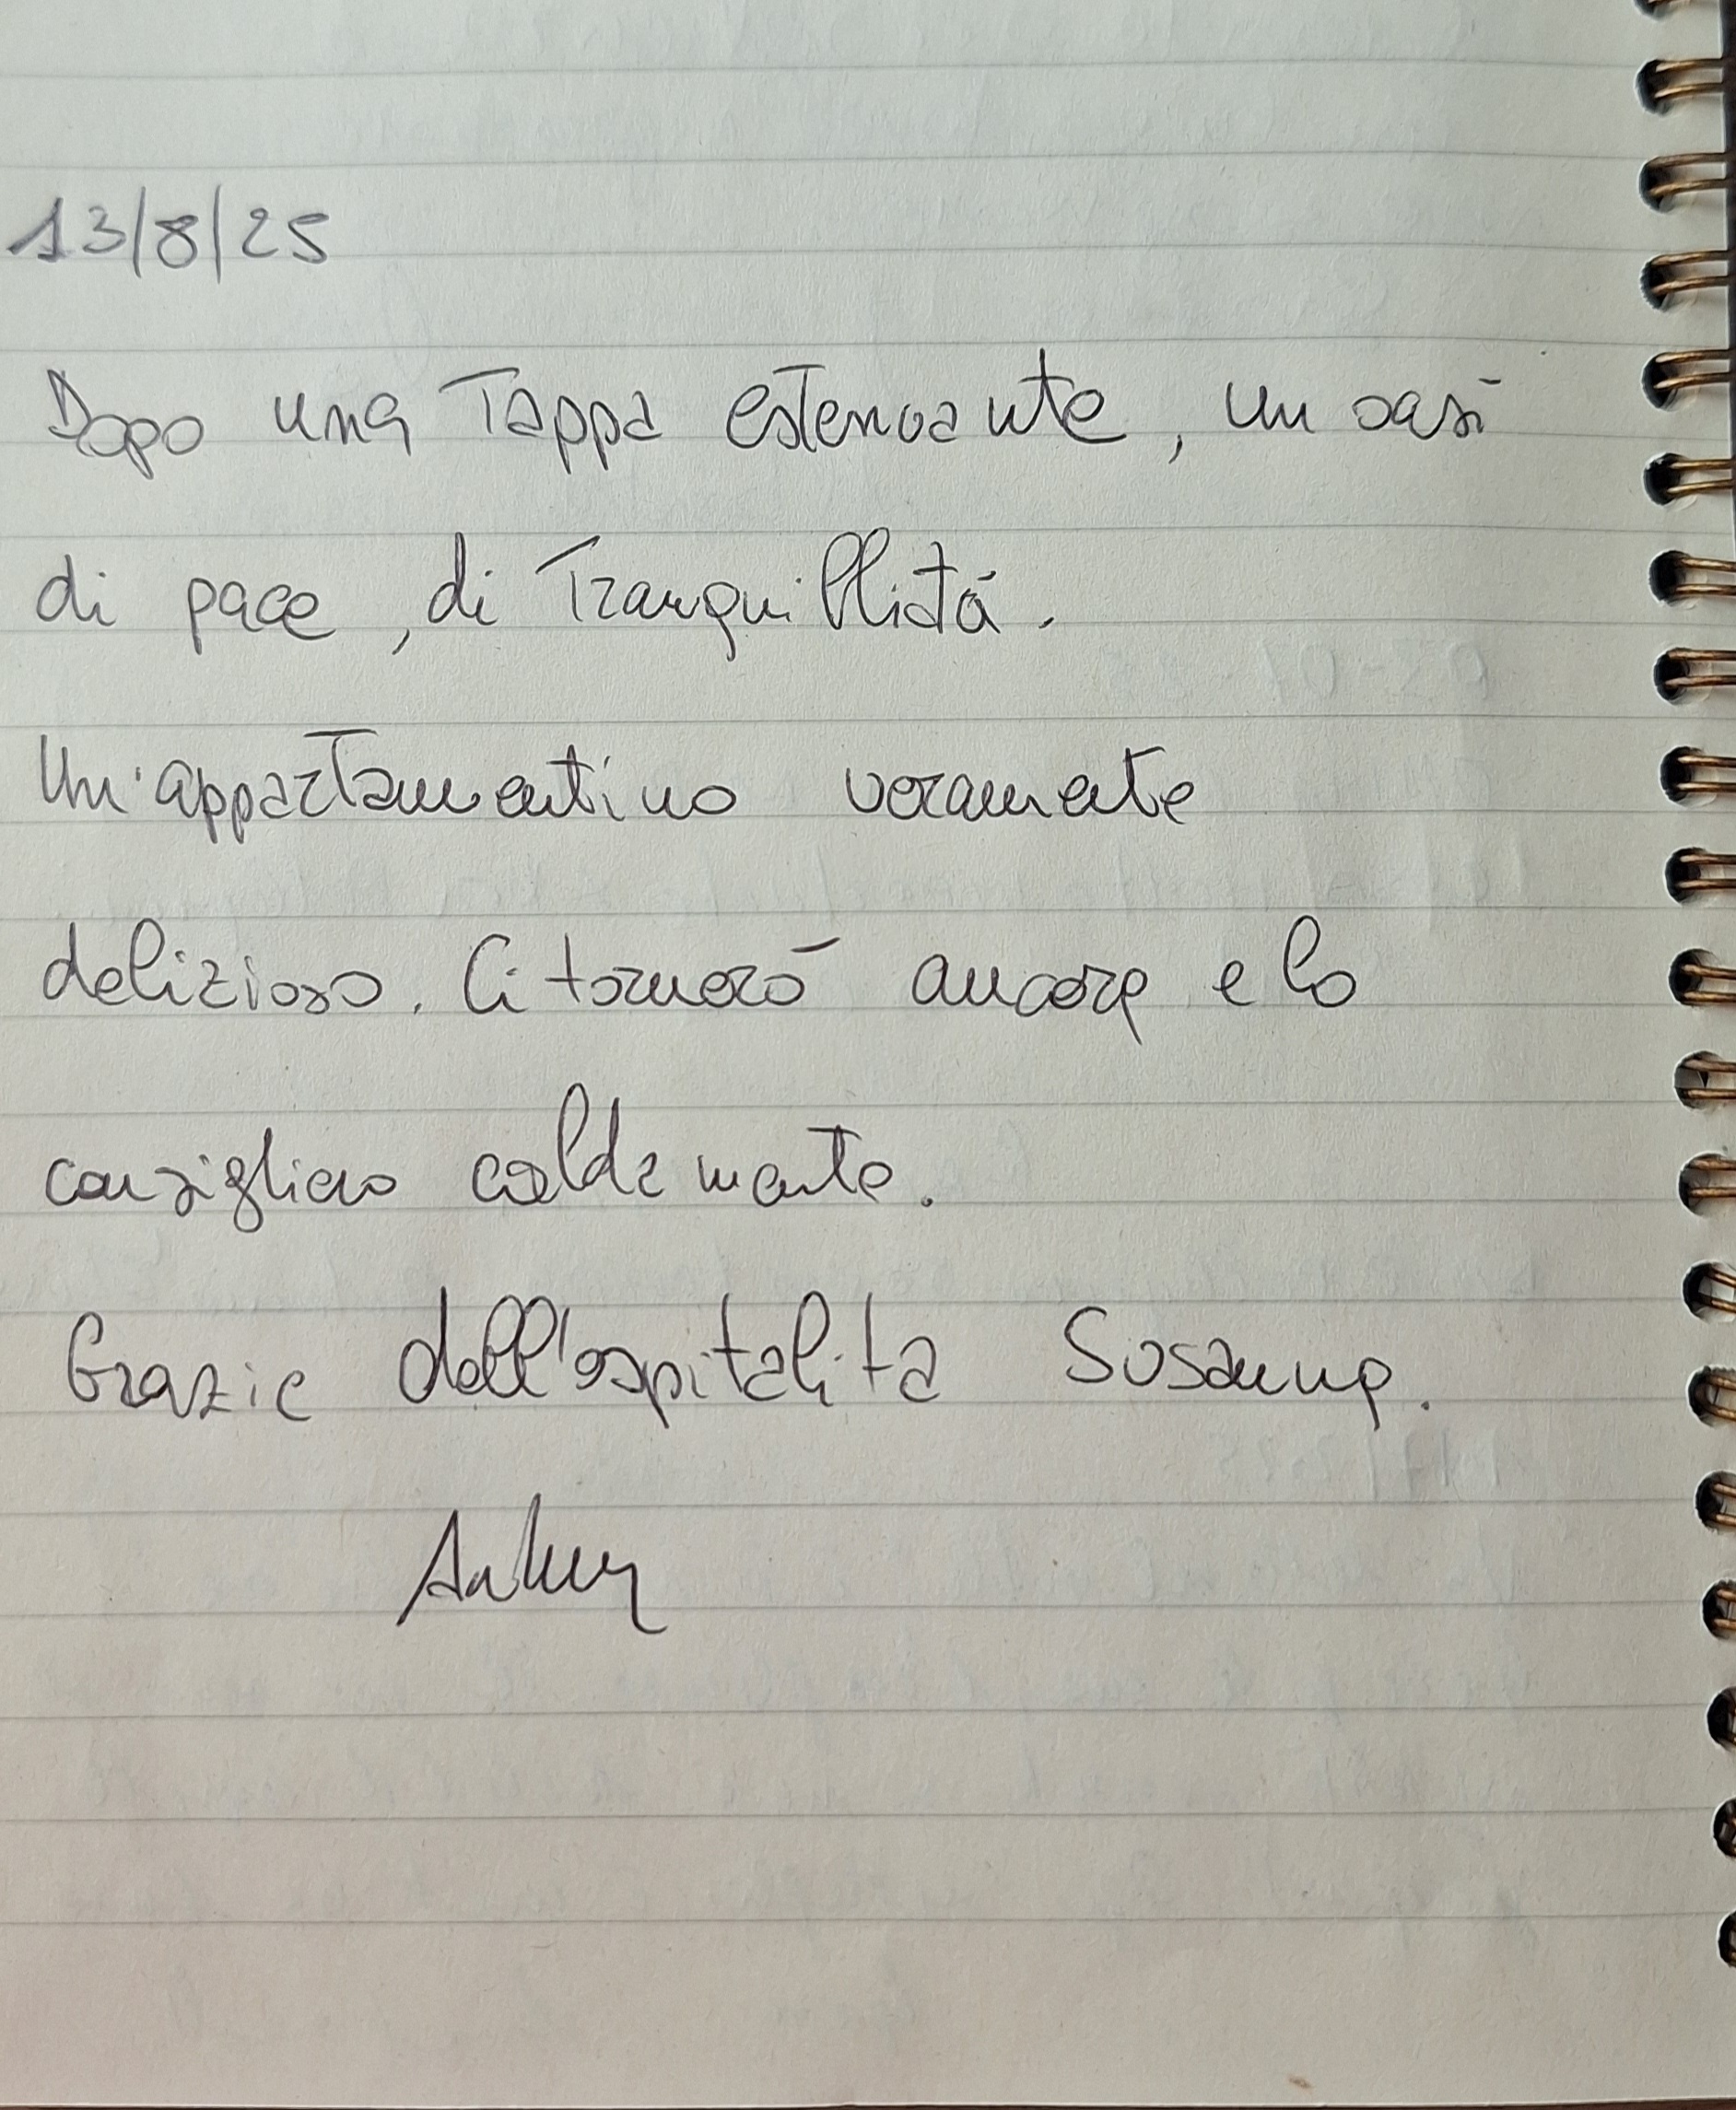 13/8/25
Dopo una Tappa estenuante, un oasi
di pace, di Tranquillità.
Un'appartamentino veramente
delizioso. Ci tornerò ancora e lo
consiglierò caldamente.
Grazie dell'ospitalità Susanna.